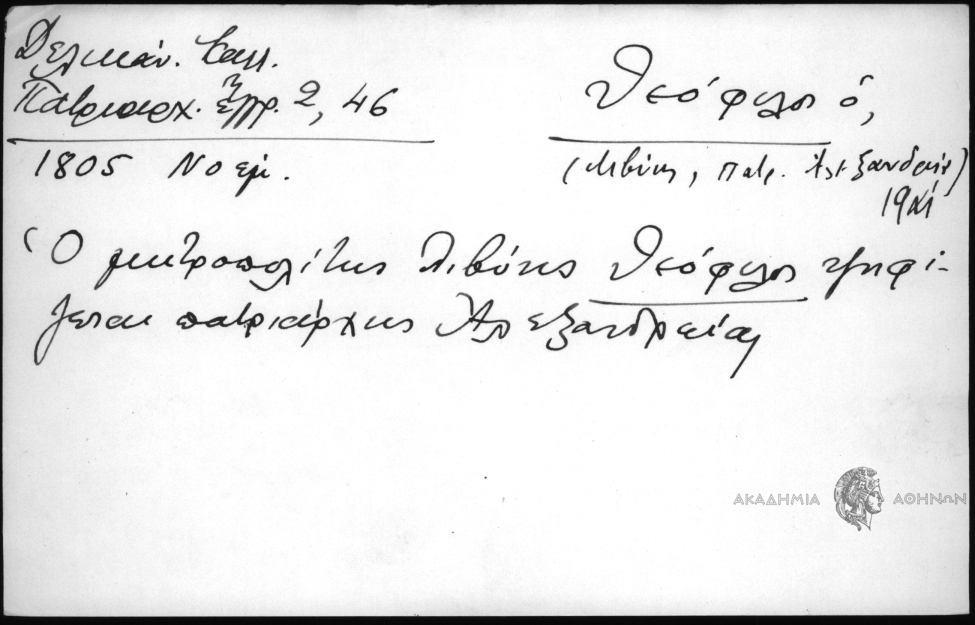 Δελικάν. Καλλ.
Πατριαρχ. Ἔγγρ. 2, 46
1805 Νοεμ.
Θεόφιλος ὁ,
(Λιβύης, πατρ. Ἀλεξανδρείας)
19
Ὁ μητροπολίτης Λιβύης Θεόφιλος ψηφί-
ζεται πατριάρχης Ἀλεξανδρείας
ΑΚΑΔΗΜΙΑ ΑΘΗΝΩΝ